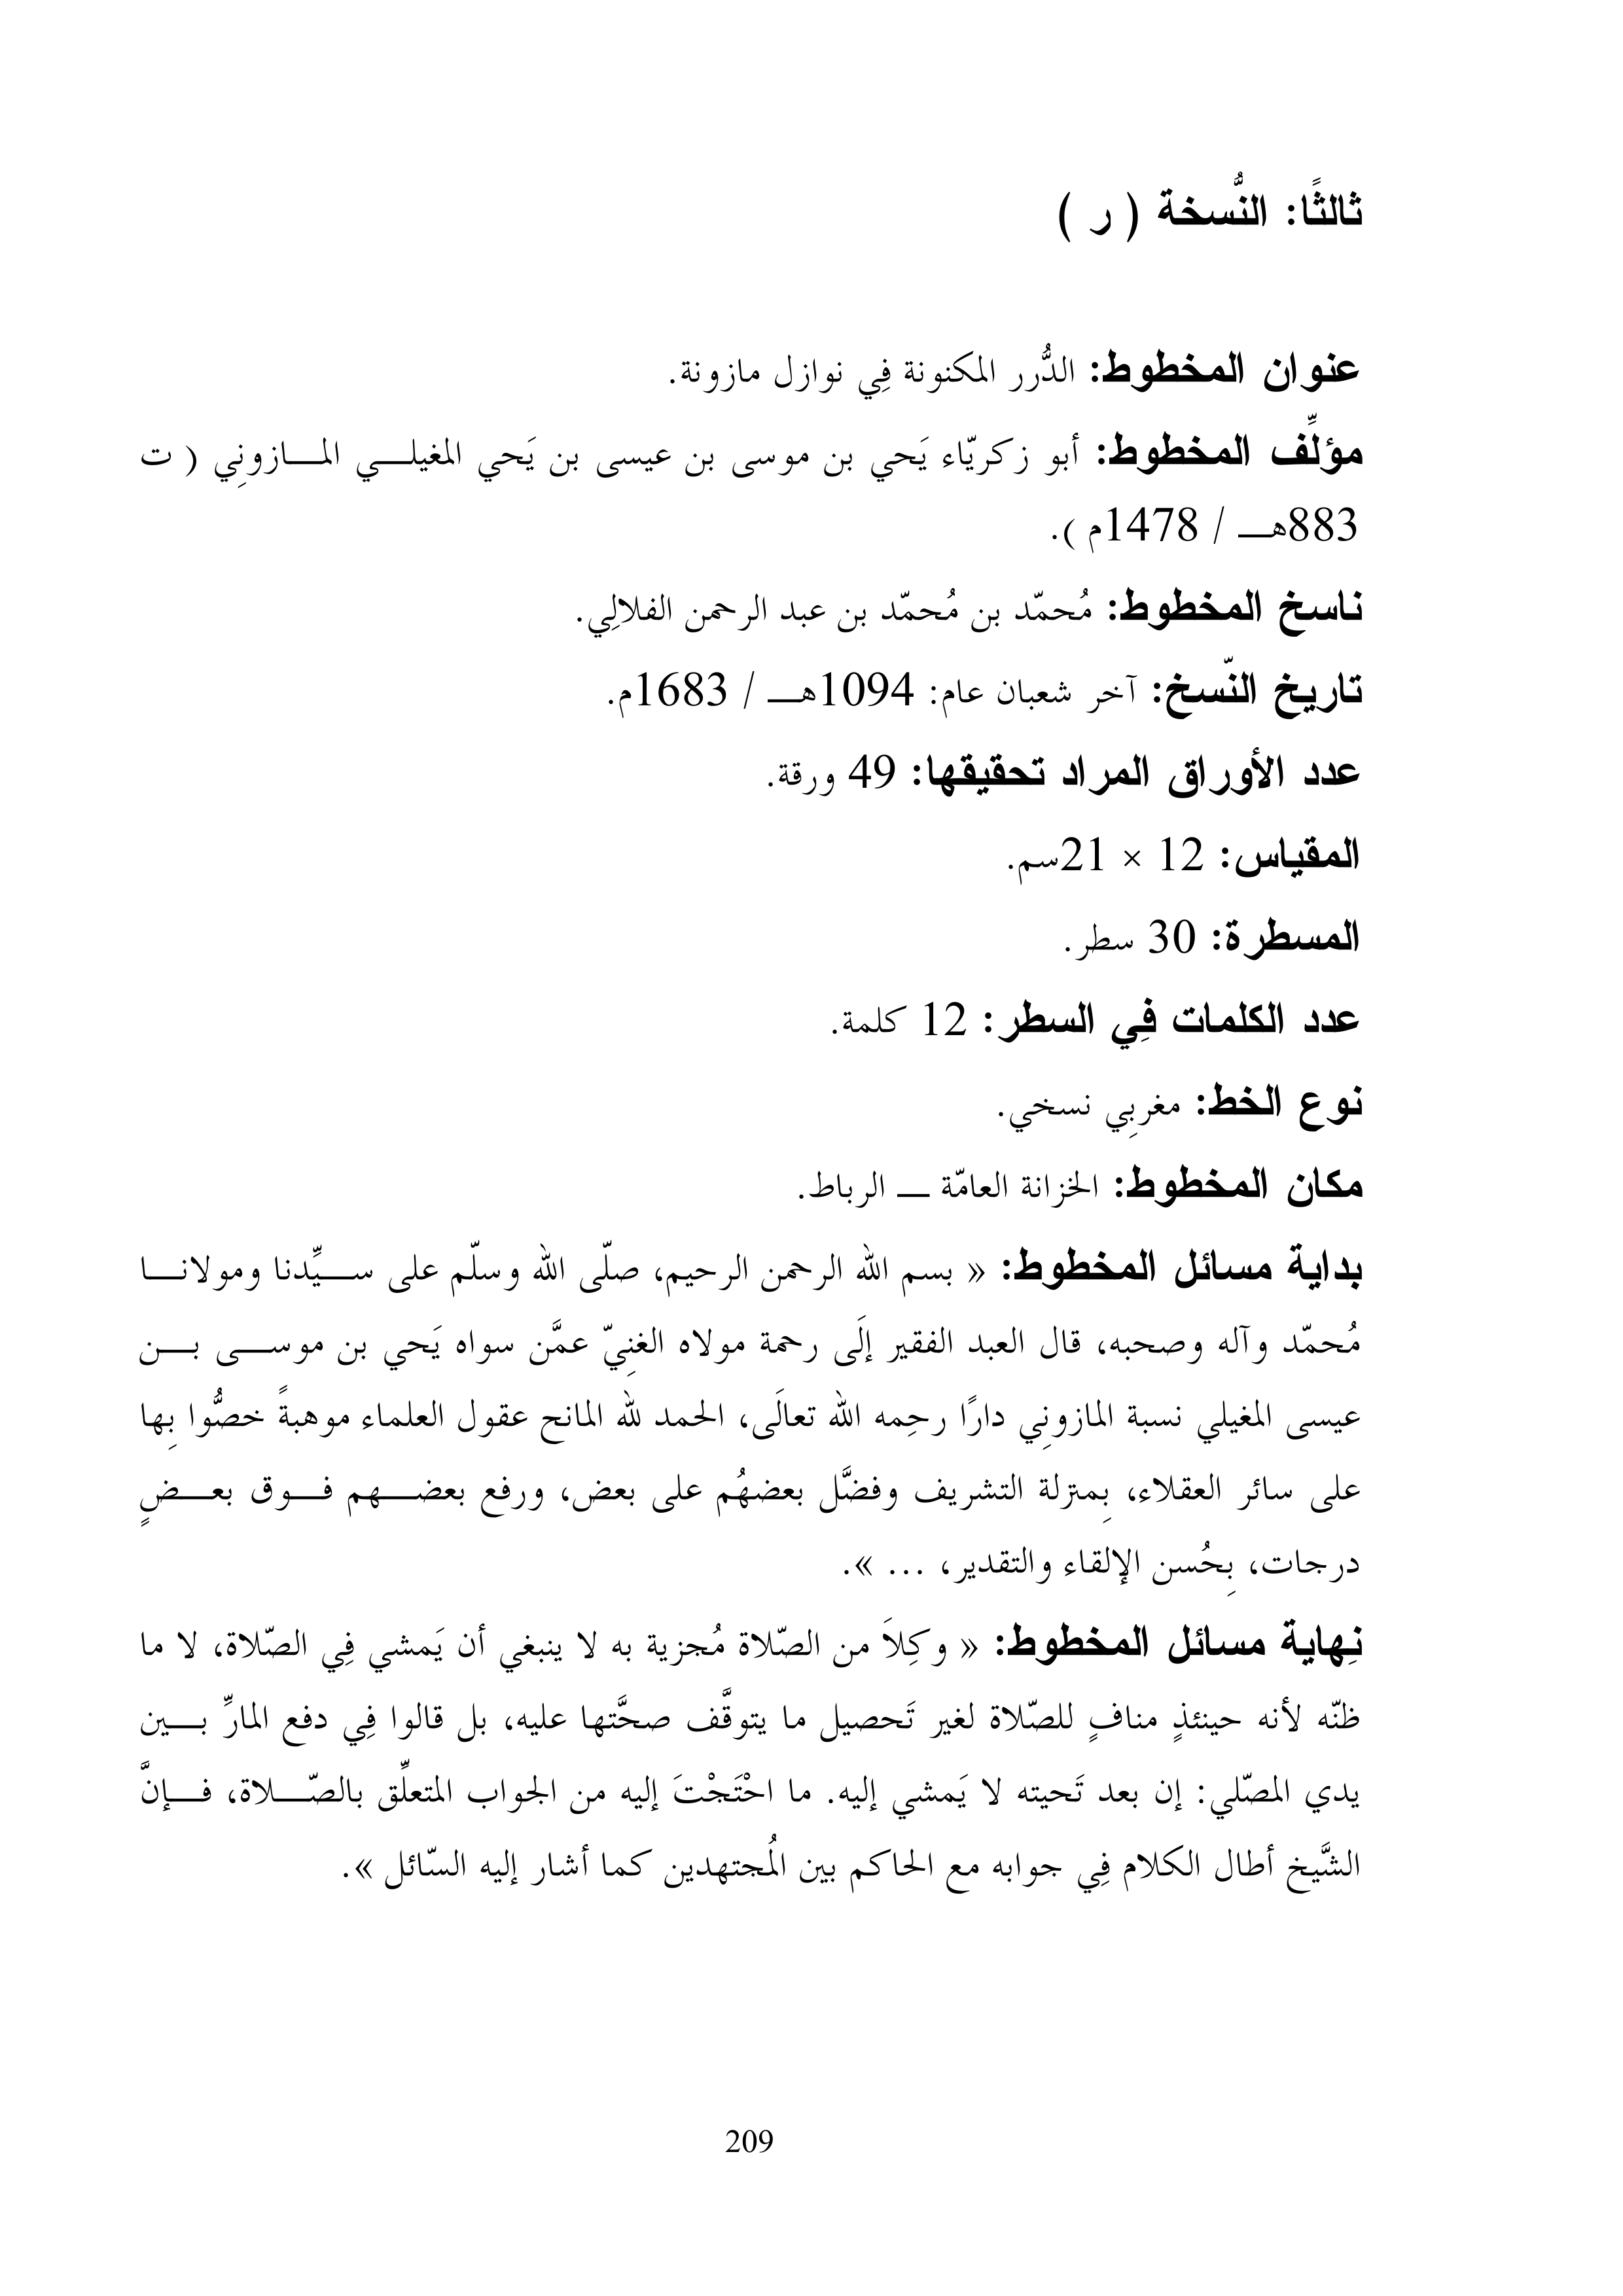 ثالثًا: النُّسخة ( ر )
عنوان المخطوط: الدُّرر المكنونة فِي نوازل مازونة.
مؤلِّف المخطوط: أبو زكريّاء يَحي بن موسى بن عيسى بن يَحي المغيلـــي المـــازونِي ( ت
883هـ / 1478م ).
ناسخ المخطوط: مُحمّد بن مُحمّد بن عبد الرحمن الفلالِي.
تاريخ النّسخ: آخر شعبان عام: 1094هـ / 1683م.
عدد الأوراق المراد تحقيقها: 49 ورقة.
المقياس: 12 × 21سم.
المسطرة: 30 سطر.
عدد الكلمات فِي السطر: 12 كلمة.
نوع الخط: مغربِي نسخي.
مكان المخطوط: الخزانة العامّة ـــ الرباط.
بداية مسائل المخطوط: « بسم الله الرحمن الرحيم، صلّى الله وسلّم على ســـيِّدنا ومولانـــا
مُحمّد وآله وصحبه، قال العبد الفقير إلَى رحمة مولاه الغنِيّ عمَّن سواه يَحي بن موســـى بـــن
عيسى المغيلي نسبة المازونِي دارًا رحِمه الله تعالَى، الحمد لله المانح عقول العلماء موهبةً خصُّوا بِها
على سائر العقلاء، بِمنزلة التشريف وفضَّل بعضهُم على بعض، ورفع بعضـــهم فـــوق بعـــضٍ
درجات، بِحُسن الإلقاء والتقدير، ... ».
نِهاية مسائل المخطوط: « وكِلاَ من الصّلاة مُجزية به لا ينبغي أن يَمشي فِي الصّلاة، لا ما
ظنّه لأنه حينئذٍ منافٍ للصّلاة لغير تَحصيل ما يتوقَّف صحَّتها عليه، بل قالوا فِي دفع المارِّ بـــين
يدي المصّلي: إن بعد تَحيته لا يَمشي إليه. ما احْتَجْتَ إليه من الجواب المتعلِّق بالصّـــلاة، فـــإنَّ
الشَّيخ أطال الكلام فِي جوابه مع الحاكم بين المُجتهدين كما أشار إليه السّائل ».
209